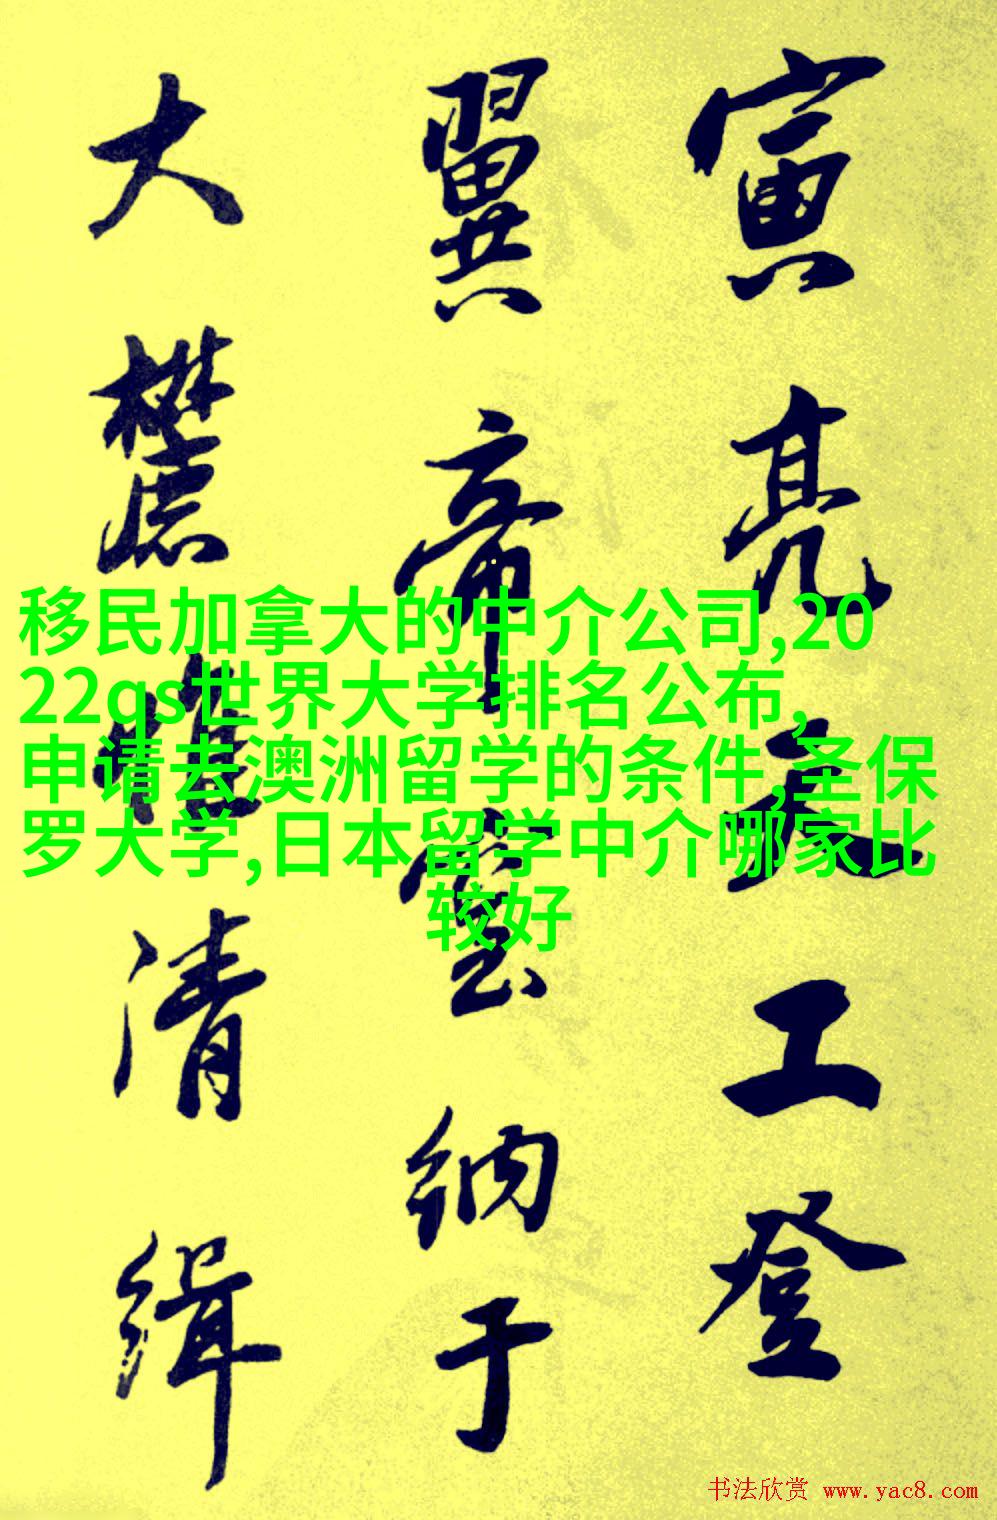 寅亮天工登
翼帝室纳于
大麓惟清缉
移民加拿大的中介公司,20
22qs世界大学排名公布,
申请去澳洲留学的条件,圣保
罗大学,日本留学中介哪家比
较好
书法欣赏 www.yac8.com